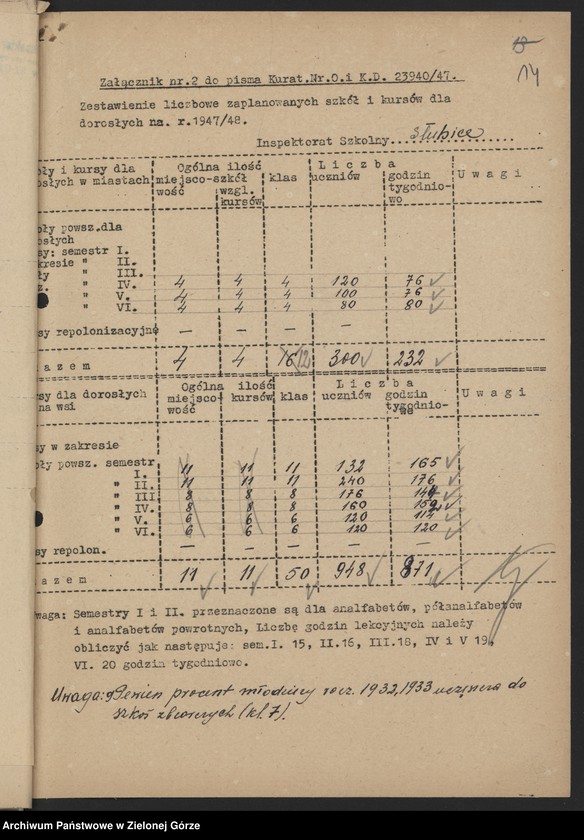 13
14
Załącznik nr.2 do pisma Kurat.Nr.O.i K.D. 23940/47.
Zestawienie liczbowe zaplanowanych szkół i kursów dla
dorosłych na. r.1947/48.
Inspektorat Szkolny...Słubice...
oły i kursy dla Ogólna ilość L i c z b a
osłych w miastach miejsco- szkół klas uczniów godzin U w a g i
wość wzgl. tygodnio-
kursów wo
oły powsz.dla
osłych
sy: semestr I.
kresie " II.
ły " III.
z. " IV. 4 4 4 120 76
" V. 4 4 4 100 76
" VI. 4 4 4 80 80
sy repolonizacyjne — — — —
a z e m 4 4 16/12 300 232
sy dla dorosłych Ogólna ilość L i c z b a
na wsi miejsco- kursów klas uczniów godzin U w a g i
wość tygodnio-
we
sy w zakresie
oły powsz. semestr
I. 11 11 11 132 165
" II. 11 11 11 240 176
" III 8 8 8 176 144
" IV. 8 8 8 160 152
" V. 6 6 6 120 114
" VI. 6 6 6 120 120
sy repolon. — — — — —
a z e m 11 11 50 948 871
waga: Semestry I i II. przeznaczone są dla analfabetów, półanalfabetów
i analfabetów powrotnych, Liczbę godzin lekcyjnych należy
obliczyć jak następuje: sem.I. 15, II.16, III.18, IV i V 19,
VI. 20 godzin tygodniowo.
Uwaga: Pewien procent młodzieży rocz. 1932, 1933 uczęszcza do
szkół zbiorczych (kl. 7).
Archiwum Państwowe w Zielonej Górze